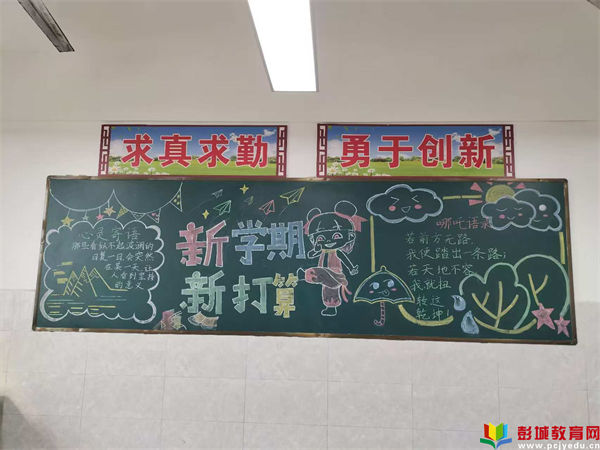 求真求勤
勇于创新
心灵寄语
那些看似不起波澜的
日复一日,会突然
在某一天,让
人看到坚持
的意义
新学期
新打算
哪吒语录
若前方无路,
我便踏出一条路;
若天地不容
我就扭
转这
乾坤!
彭城教育网
www.pcjyedu.cn